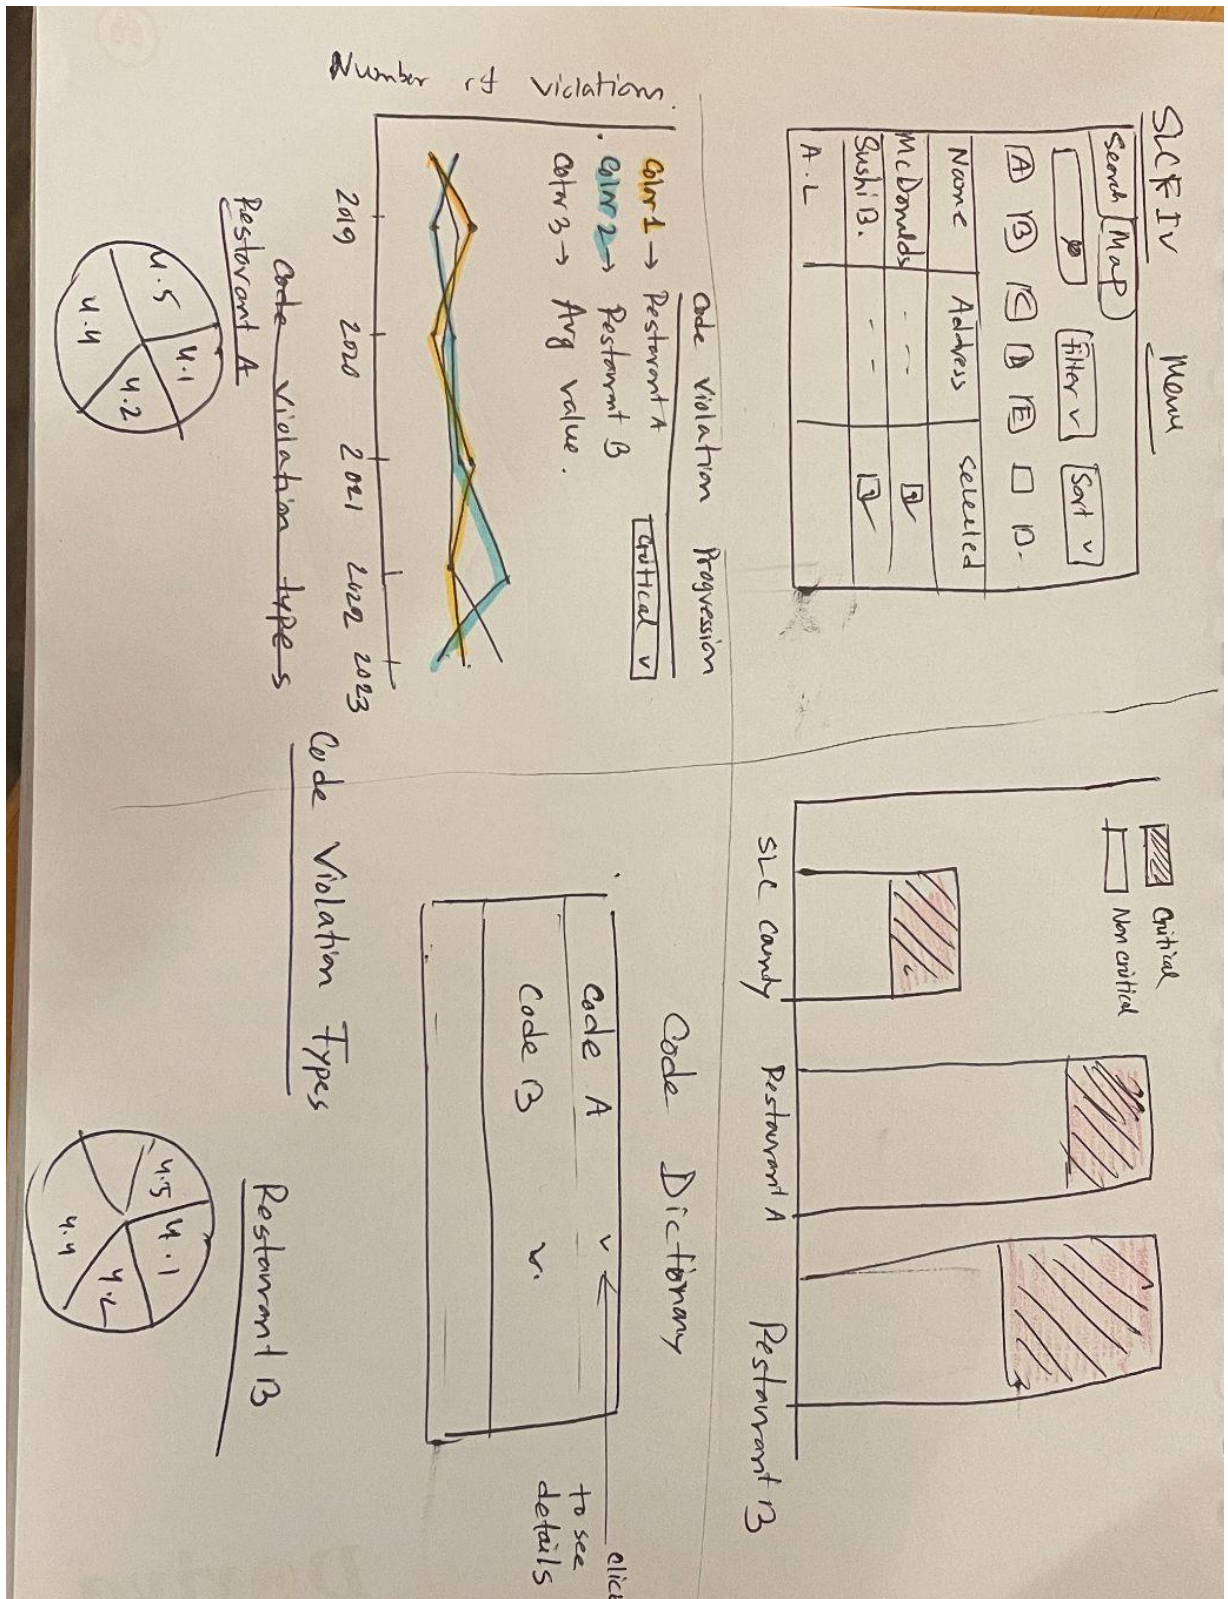 SLCFIV Menu
Search Map
Filter v Sort v
A B C D E
Name Address Selected
McDonalds - - -
Sushi B. - -
A.L
Critical
Non critical
SLC county Restaurant A Restaurant B
Code violation Progression
Color 1 → Restaurant A
Critical v
Color 2 → Restaurant B
Color 3 → Avg value.
Number of violations.
2019 2020 2021 2022 2023
Code Dictionary
Code A v
Code B v.
click
to see
details
Code violation types
Code Violation Types
Restaurant A
4.5
4.1
4.4
4.2
Restaurant B
4.5
4.1
4.4
4.2